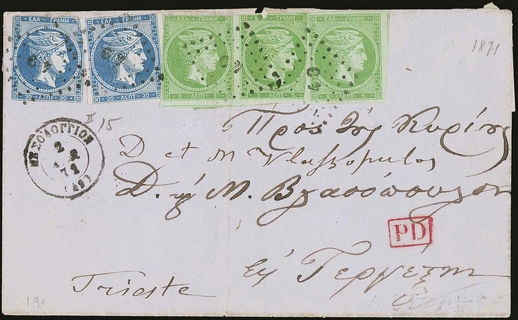 ΕΛΛ. ΓΡΑΜΜ. ΕΛΛ. ΓΡΑΜΜ. ΕΛΛ. ΓΡΑΜΜ. ΕΛΛ. ΓΡΑΜΜ. ΕΛΛ. ΓΡΑΜΜ.
20 ΛΕΠΤ. 20 20 ΛΕΠΤ. 20 ΛΕΠΤ. ΛΕΠΤ. ΛΕΠΤ.
1871
II/15
ΜΕΣΟΛΟΓΓΙΟΝ
2
71
(49)
Πρὸς
D et M Vlassopulos
Δ. καὶ Μ. Βλασσόπουλον
PD
Εἰς Τεργέστην
Trieste
190